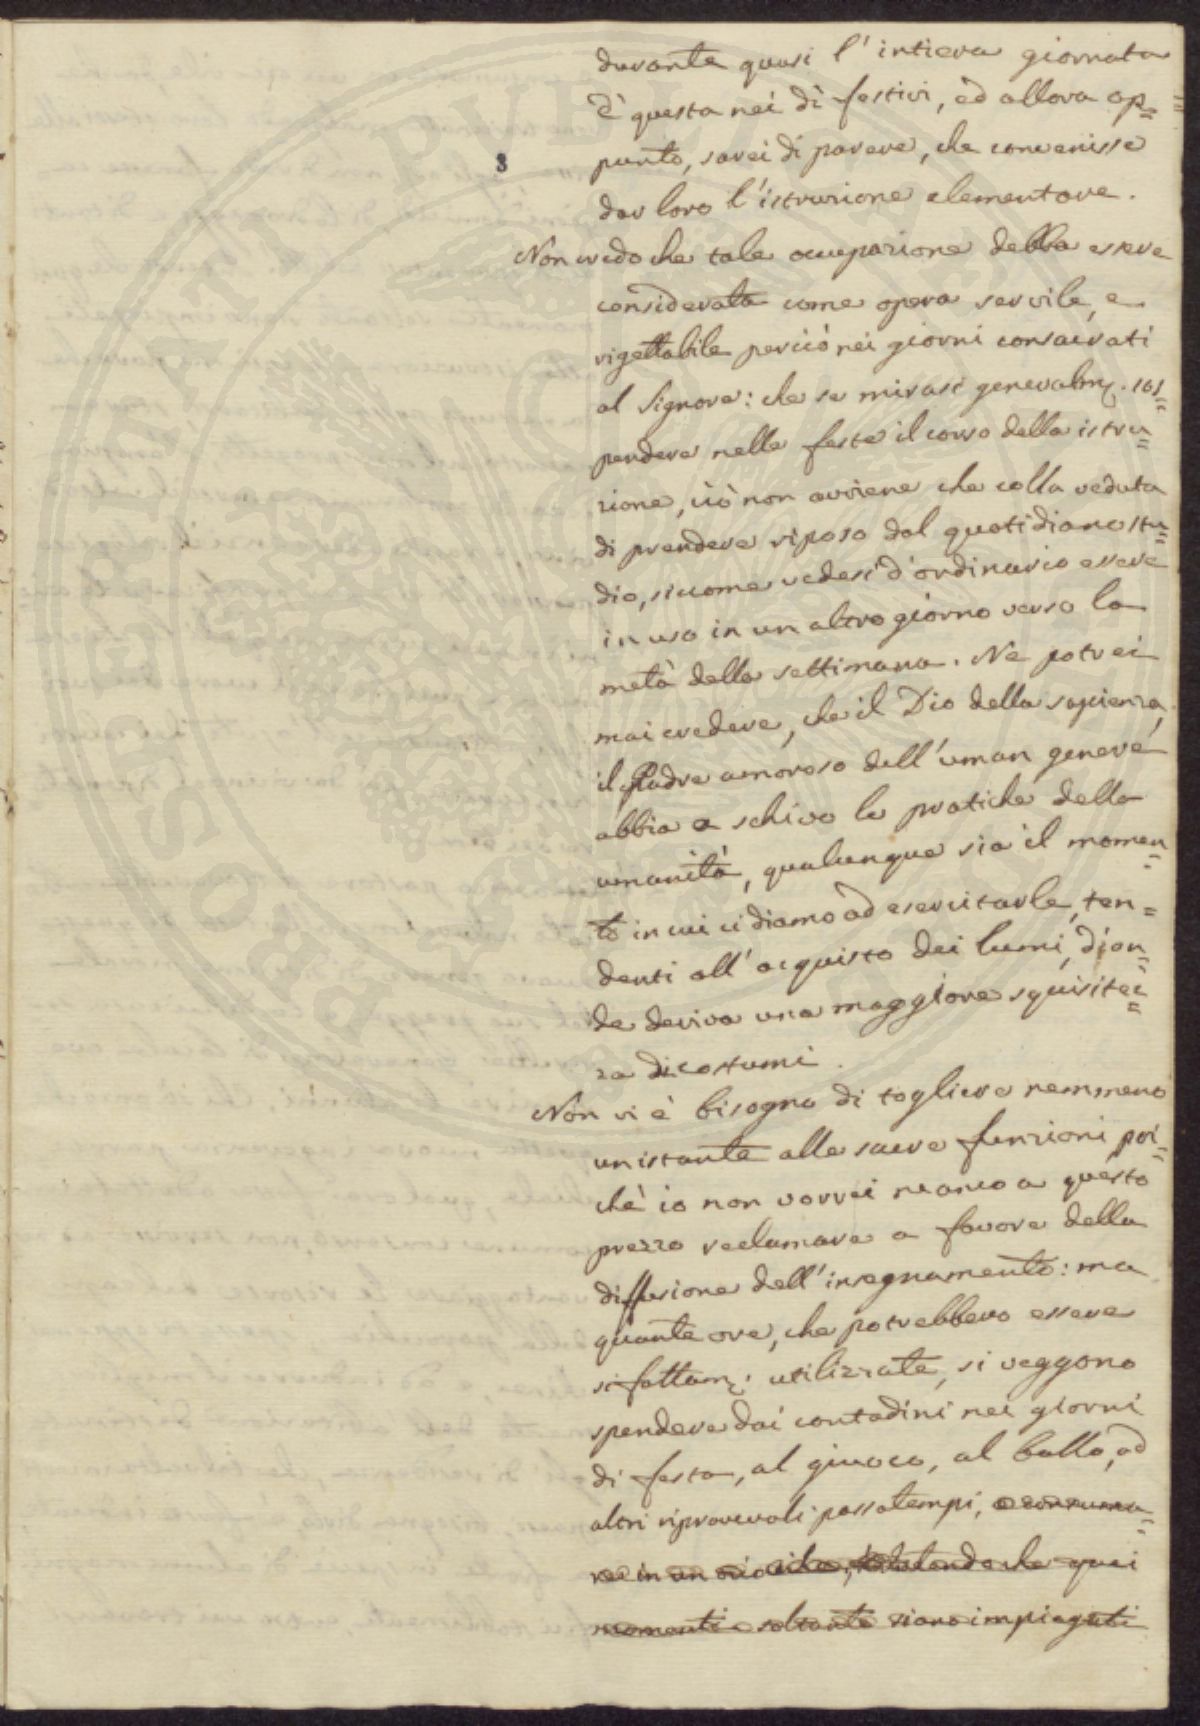 durante quasi l'intiera giornata
è questa nei dì festivi, ed allora ap=
punto, sarei di parere, che convenisse
3
dar loro l'istruzione elementare.
Non credo che tale occupazione debba essere
considerata come opera servile, e
rigettabile perciò nei giorni consacrati
al Signore: che se mirasi generalm. sos=
pendere nelle feste il corso della istru=
zione, ciò non avviene che colla veduta
di prendere riposo dal quotidiano stu=
dio, siccome vedesi d'ordinario essere
in uso in un altro giorno verso la
metà della settimana. Ne potrei
mai credere, che il Dio della sapienza,
il Padre amoroso dell'uman genere
abbia a schivo le pratiche della
umanità, qualunque sia il momen=
to in cui ci diamo ad esercitarle, ten=
denti all'acquisto dei lumi, d'on=
de deriva una maggiore squisitez=
za di costumi.
Non vi è bisogno di togliere nemmeno
un istante alle sacre funzioni poi=
chè io non vorrei neanco a questo
prezzo reclamare a favore della
diffusione dell'insegnamento: ma
quante ore, che potrebbero essere
sì fattam: utilizzate, si veggono
spendere dai contadini nei giorni
di festa, al giuoco, al ballo, ad
altri riprovevoli passatempi, o consuma=
re in un ozio vile, che quei
momenti soltanto siano impiegati